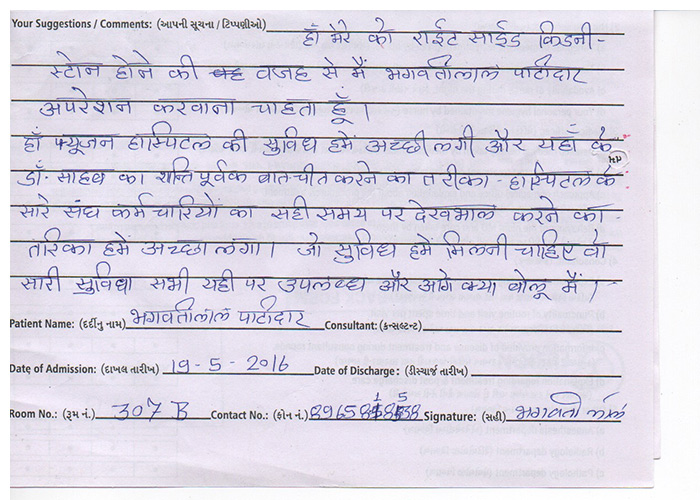 Your Suggestions / Comments: (આપની સૂચના / ટિપ્પણીઓ) हाँ मेरे को राईट साईड किडनी-
स्टोन होने की वजह से मैं भगवतीलाल पाटीदार
अपरेशन करवाना चाहता हूँ।
हाँ फ्यूजन हास्पिटल की सुविध हमें अच्छी लगी और यहाँ के
डॉ. साहब का शन्तिपूर्वक बातचीत करने का तरीका - हास्पिटल के
सारे संघ कर्मचारियों का सही समय पर देखभाल करने का
तरिका हमें अच्छा लगा। जो सुविध हमें मिलनी चाहिए वो
सारी सुविधा सभी यही पर उपलब्ध और आगे क्या बोलू मैं।
Patient Name: (દર્દીનું નામ) भगवतीलाल पाटीदार Consultant: (કન્સલ્ટન્ટ)
Date of Admission: (દાખલ તારીખ) 19-5-2016 Date of Discharge : (ડીસ્ચાર્જ તારીખ)
Room No.: (રૂમ નં.) 307 B Contact No.: (ફોન નં.) Signature: (સહી) भगवती लाल